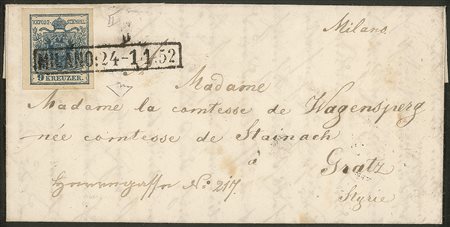 Milano
KKPOST-STEMPEL
9 KREUZER.
MILANO:24-11.52
Madame
Madame la comtesse de Wagensperg
née comtesse de Stainach
à
Gratz
Herrengasse No. 217.
Styrie